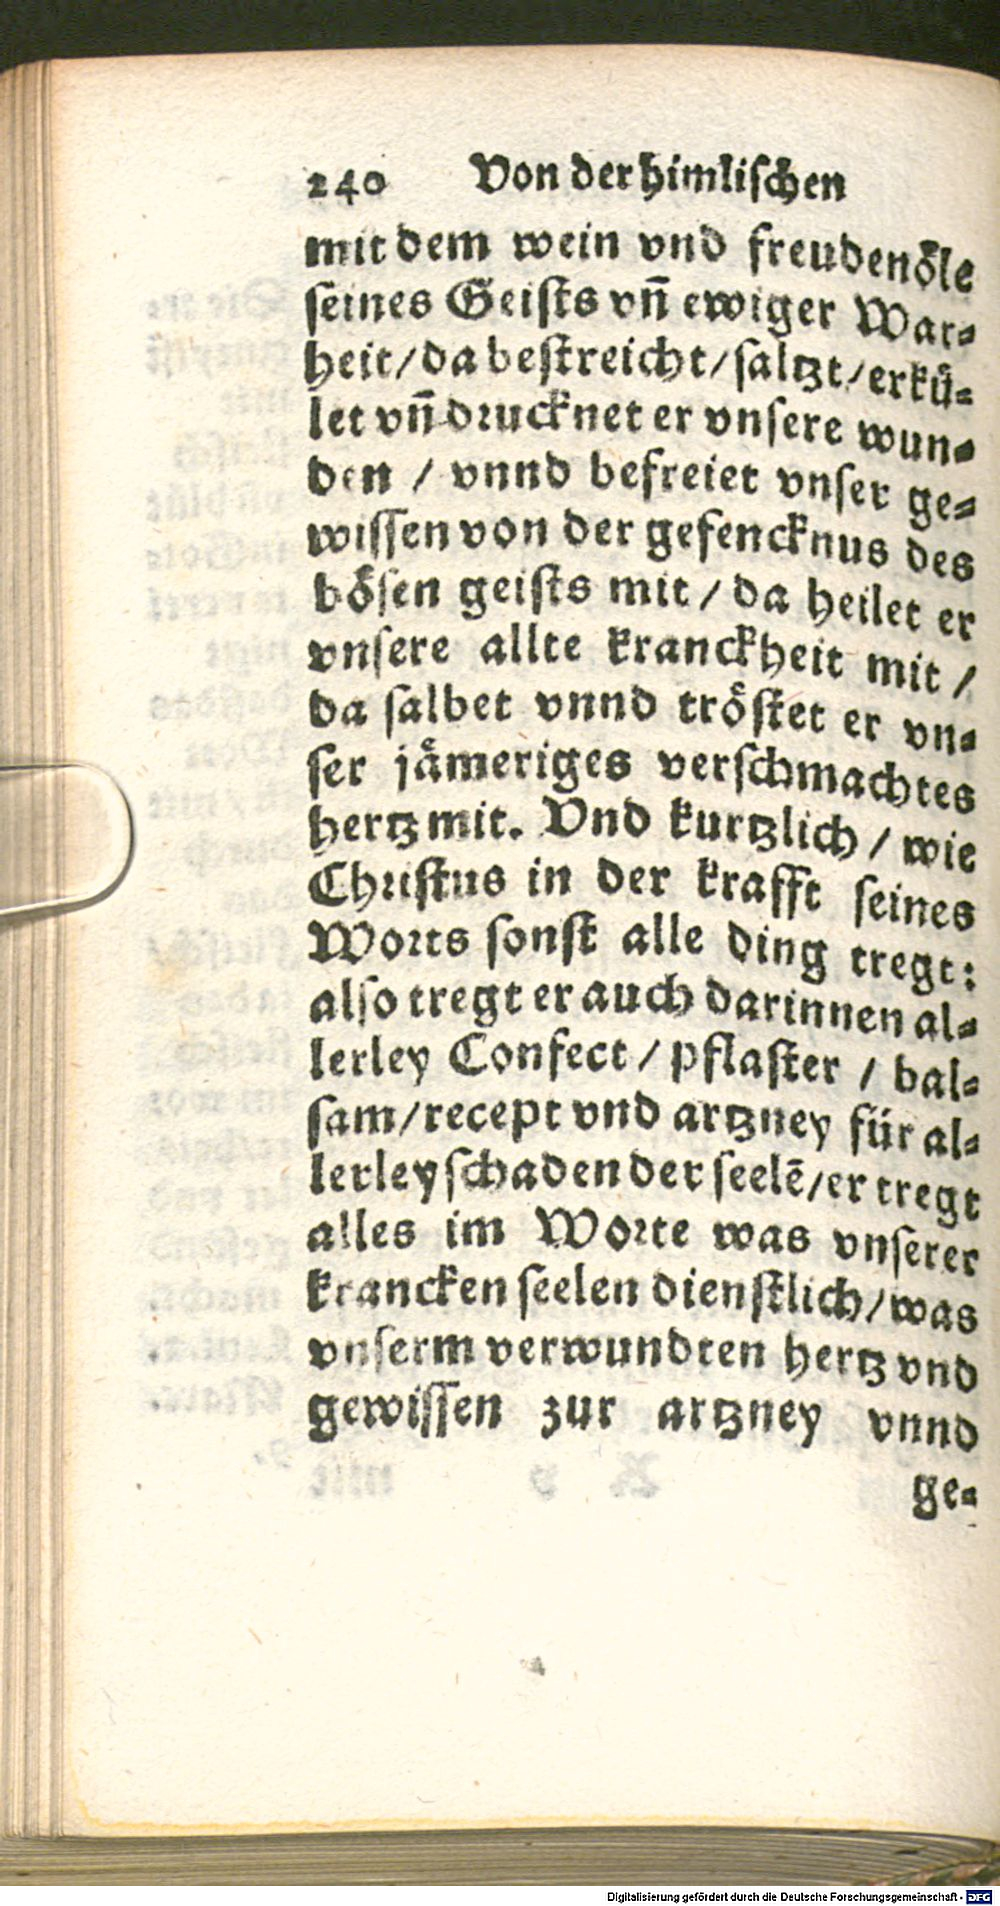 240 Von der himlischen
mit dem wein vnd freudenöle
ſeines Geiſts vñ ewiger War⸗
heit/da beſtreicht/ſaltzt/erkuͤ⸗
let vñ drucknet er vnſere wun⸗
den / vnnd befreiet vnſer ge⸗
wiſſen von der gefencknus des
boͤſen geiſts mit / da heilet er
vnſere allte kranckheit mit /
da ſalbet vnnd troͤſtet er vn⸗
ſer jaͤmeriges verſchmachtes
hertz mit. Vnd kurtzlich / wie
Chꝛiſtus in der krafft ſeines
Woꝛts ſonſt alle ding tregt:
alſo tregt er auch darinnen al⸗
lerley Confect / pflaſter / bal⸗
ſam/recept vnd artzney für al⸗
lerley ſchaden der ſeelẽ/er tregt
alles im Woꝛte was vnſerer
krancken ſeelen dienſtlich/was
vnſerm verwundten hertz vnd
gewiſſen zur artzney vnnd
ge⸗
Digitalisierung gefördert durch die Deutsche Forschungsgemeinschaft - DFG